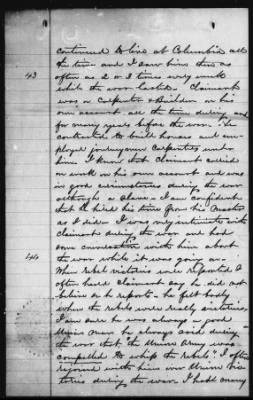 continued to live at Columbia all
the time and I saw him there as
43 often as 2 or 3 times every week
while the war lasted. Claimant
was a Carpenter & Builder on his
own account all the time during and
for many years before the war. He
contracted to build houses and em-
ployed journeymen Carpenters under
him. I know that claimant carried
on work on his own account and was
in good circumstances during the war
although a slave - I am confident
that he hired his time from his Master
as I did. I was very intimate with
claimant during the war and had
some conversation with him about
44 the war while it was going on.
When rebel victories were reported I
often heard claimant say he did not
believe the reports - he felt badly
when the rebels were really victorious,
I am sure he was always a good
Union man he always said during
the war that the Union Army was
compelled to whip the rebels." I often
rejoiced with him over Union vic-
tories during the war. I held many